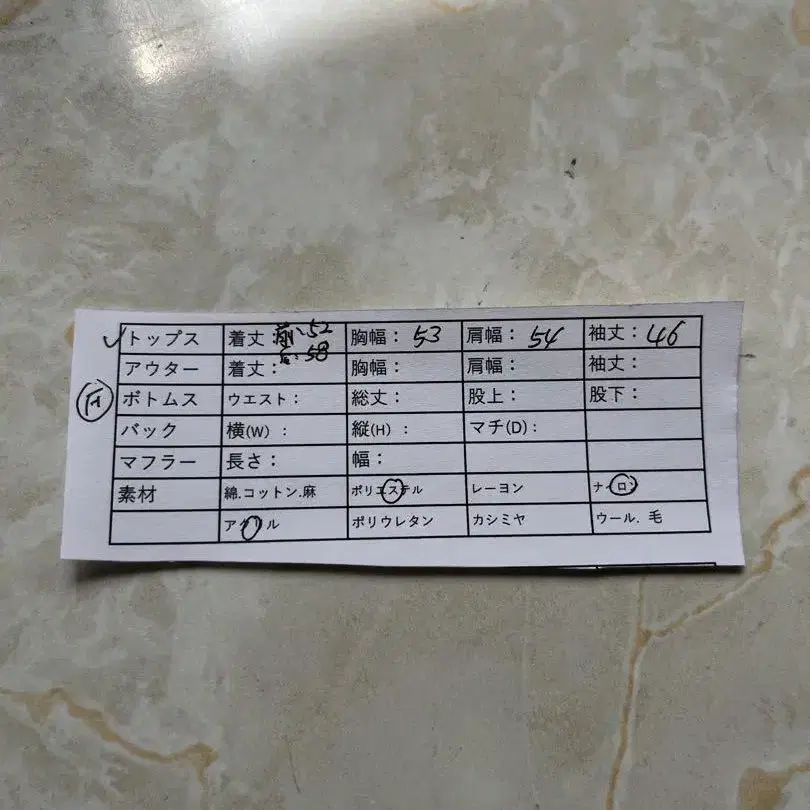 トップス 着丈 前:52 胸幅: 53 肩幅: 54 袖丈: 46
后:58
アウター 着丈: 胸幅: 肩幅: 袖丈:
ボトムス ウエスト: 総丈: 股上: 股下:
バック 横(W) : 縦(H) : マチ(D):
マフラー 長さ: 幅:
素材 綿.コットン.麻 ポリエステル レーヨン ナイロン
アクリル ポリウレタン カシミヤ ウール. 毛